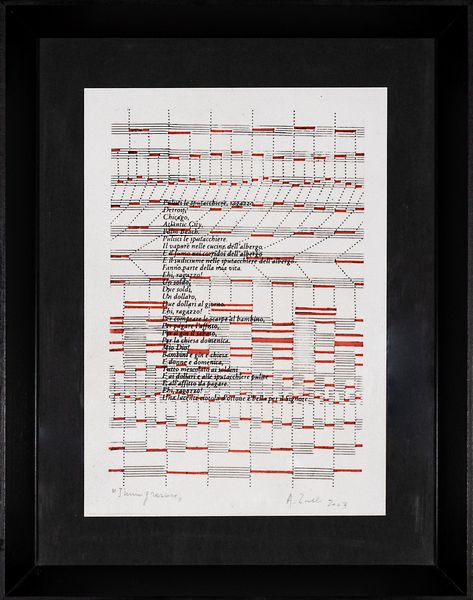 Pulisci le sputacchiere, ragazzo.
Detroit,
Chicago,
Atlantic City,
Palm Beach.
Pulisci le sputacchiere.
Il vapore nelle cucine dell'albergo
E il fumo nei corridoi dell'albergo
E il sudiciume nelle sputacchiere dell'albergo
Fanno parte della mia vita.
Ehi, ragazzo!
Un soldo,
Due soldi,
Un dollaro,
Due dollari al giorno.
Ehi, ragazzo!
Per comprare le scarpe al bambino,
Per pagare l'affitto,
Per il gin il sabato,
Per la chiesa domenica.
Mio Dio!
Bambini e gin e chiesa
E donne e domenica,
Tutto mescolato ai soldini
E ai dollari e alle sputacchiere pulite
E all'affitto da pagare.
Ehi, ragazzo!
Una lucente ciotola d'ottone è bella per il Signore.
A.